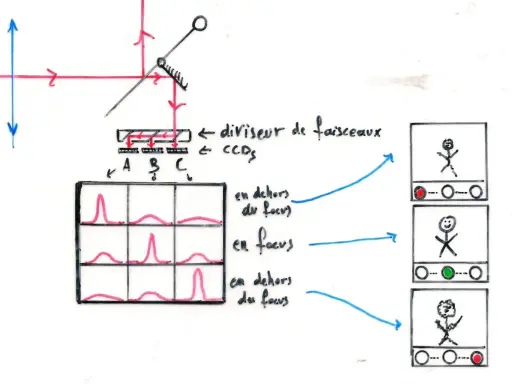 ← diviseur de faisceaux
← CCDs
A B C
en dehors
du focus
en focus
en dehors
du focus